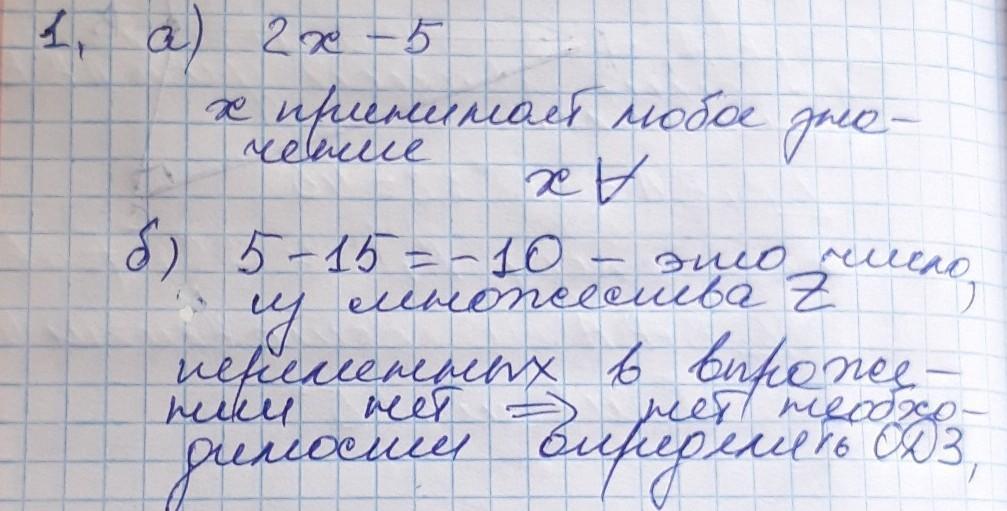 1. а) 2x - 5
x принимает любое зна-
чение
x ∀
б) 5 - 15 = -10 - это число,
из множества Z
переменных в выраже-
нии нет ⇒ нет необхо-
димости определить ОДЗ,